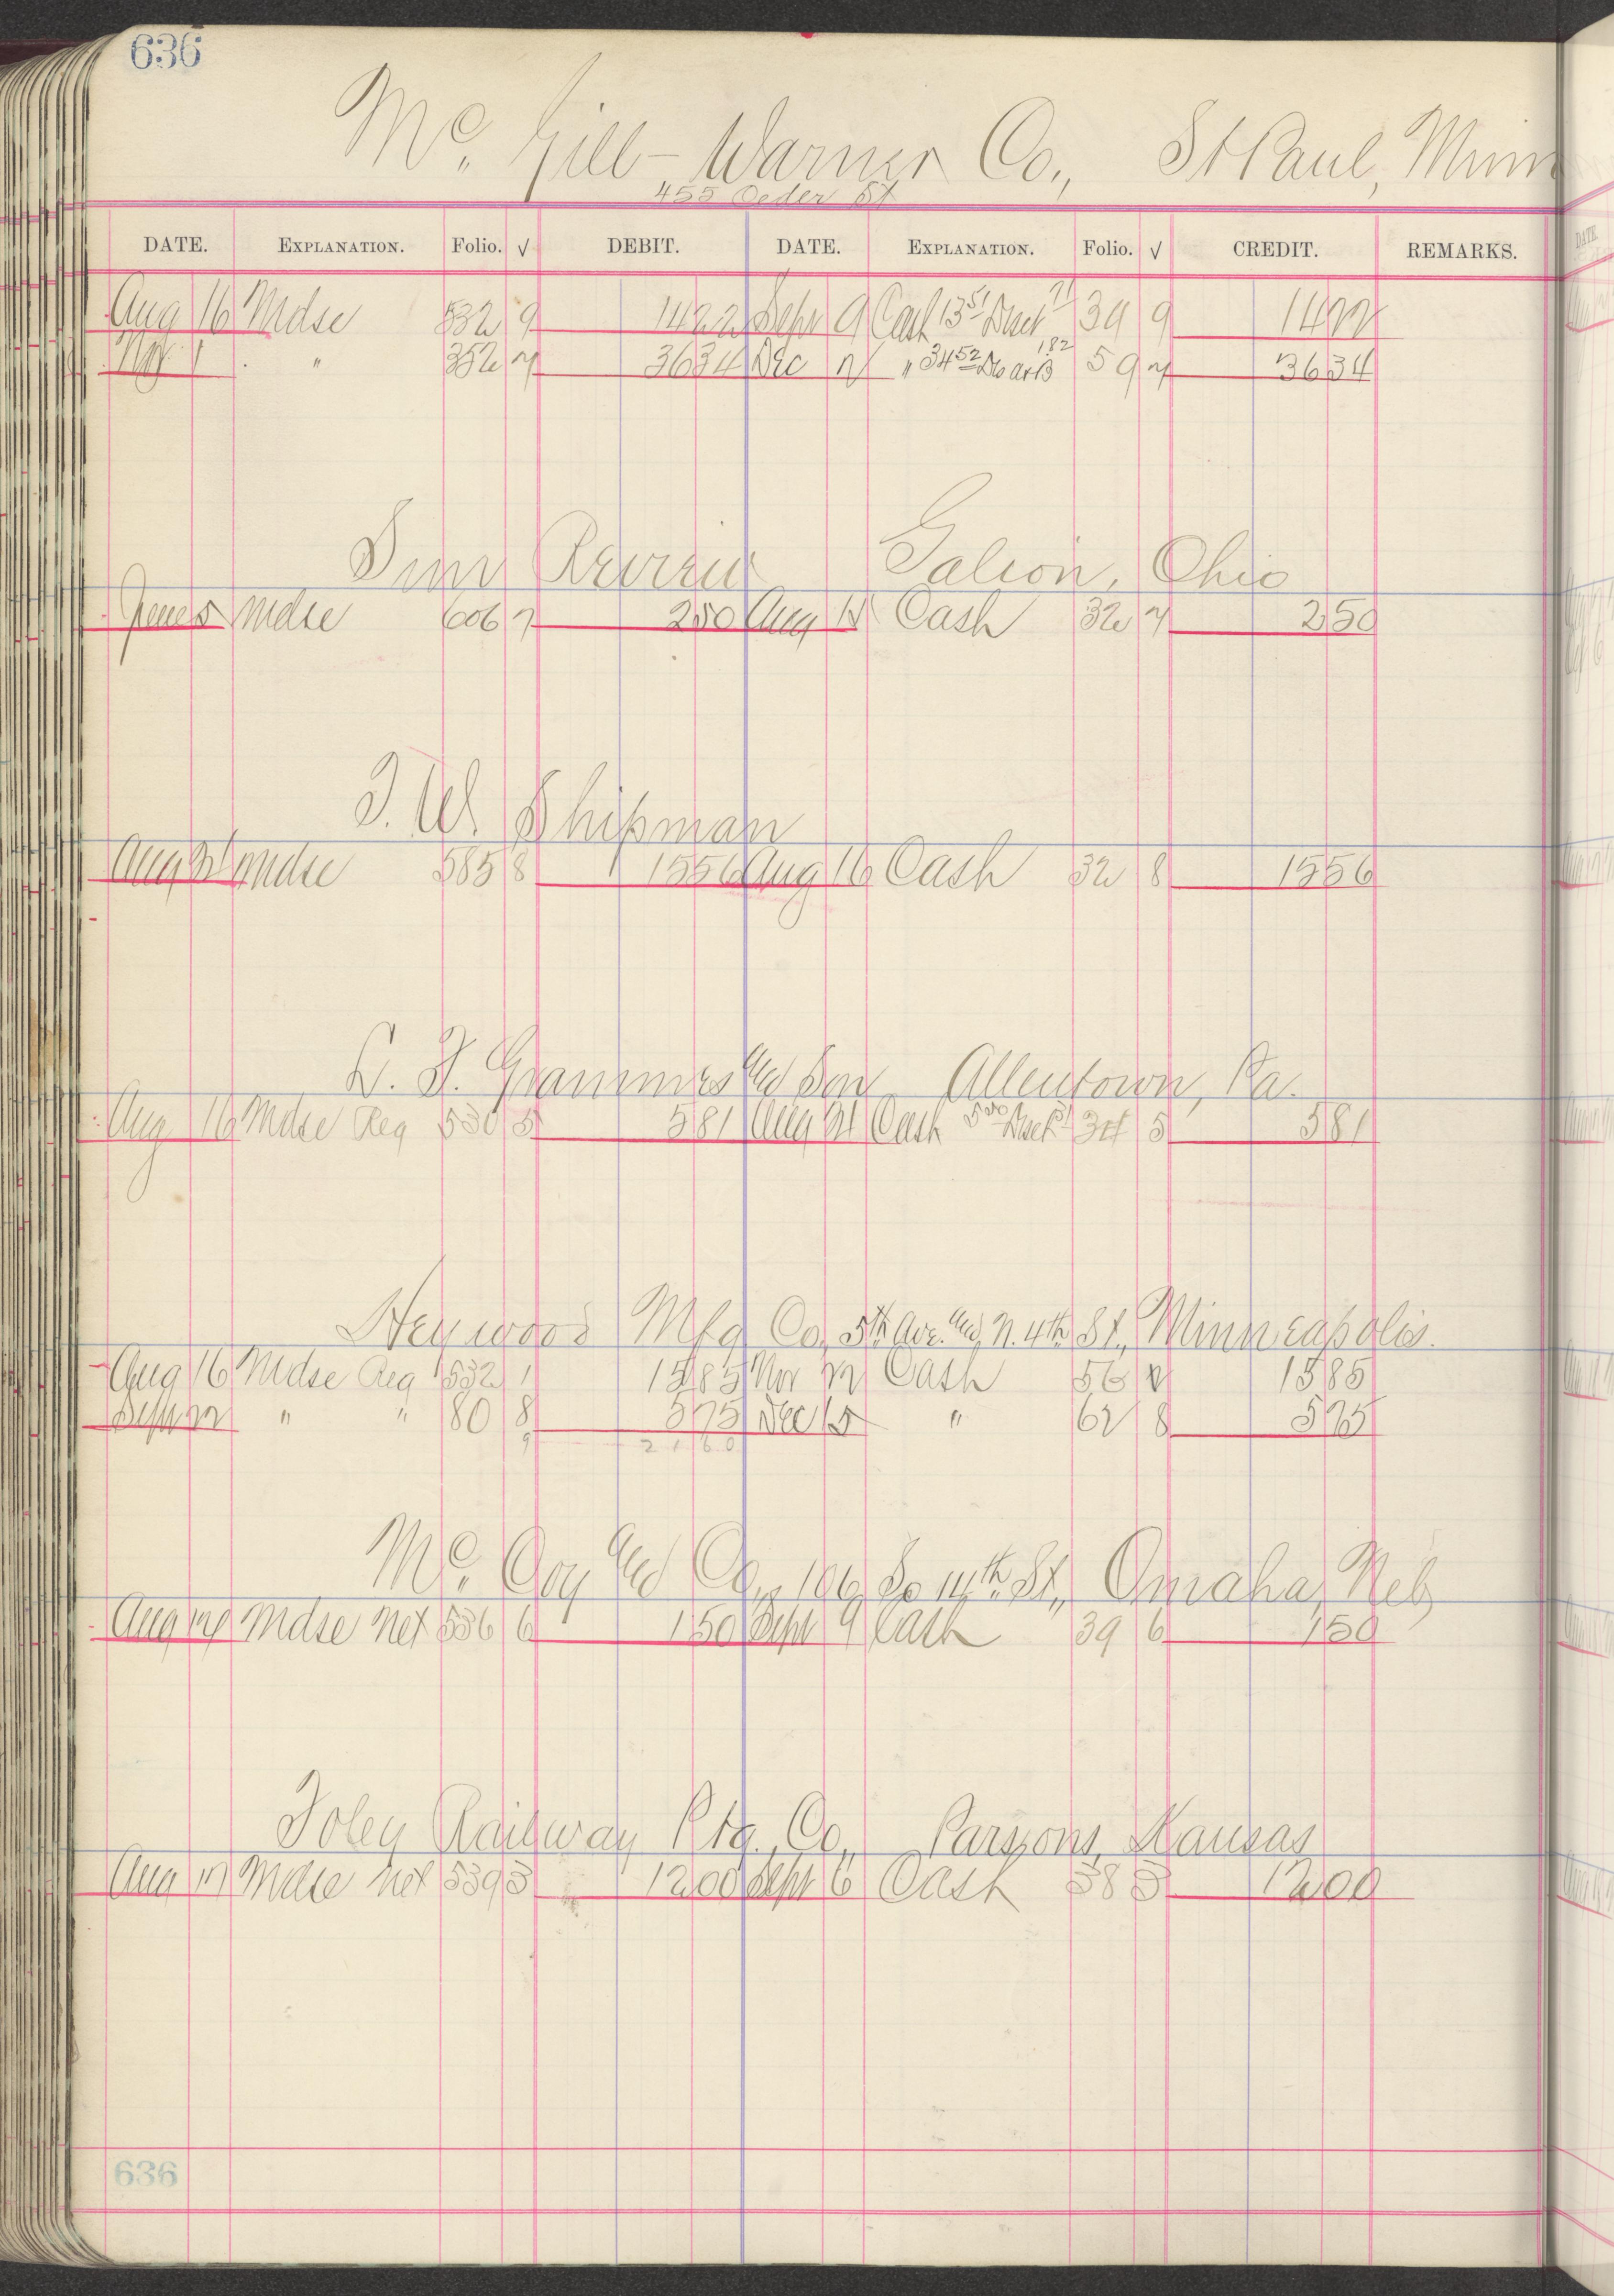 636
Mc. Gill-Warner Co., St Paul, Minn
455 Ceder St
DATE. EXPLANATION. Folio. √ DEBIT. DATE. EXPLANATION. Folio. √ CREDIT. REMARKS.
Aug 16 Mdse 532 9 1422 Sept 9 Cash 13 51 Disct 71 39 9 1422
Nov 1 " 352 7 3634 Dec 2 " 34 52 1 82 59 7 3634
Review Galion, Ohio
June 5 Mdse 606 7 250 Aug 15 Cash 32 7 250
T. W. Shipman
Aug Mdse 585 8 1556 Aug 16 Cash 32 8 1556
L. F. Grammes & Son Allentown, Pa.
Aug 16 Mdse Reg 530 5 581 Aug 21 Cash Disct 34 5 581
Heywood Mfg Co, 5th Ave. & N. 4th St., Minneapolis.
Aug 16 Mdse Reg 532 1 1585 Nov 22 Cash 56 1585
Sept 22 " " 80 8 575 Dec 15 " 62 8 575
9 2160
Mc. Coy & Co., 106 So 14th St., Omaha, Neb
Aug 17 Mdse Net 536 6 150 Sept 9 Cash 39 6 150
Foley Railway Ptg. Co., Parsons, Kansas
Aug 17 Mdse Net 539 3 1200 Sept 6 Cash 38 3 1200
636